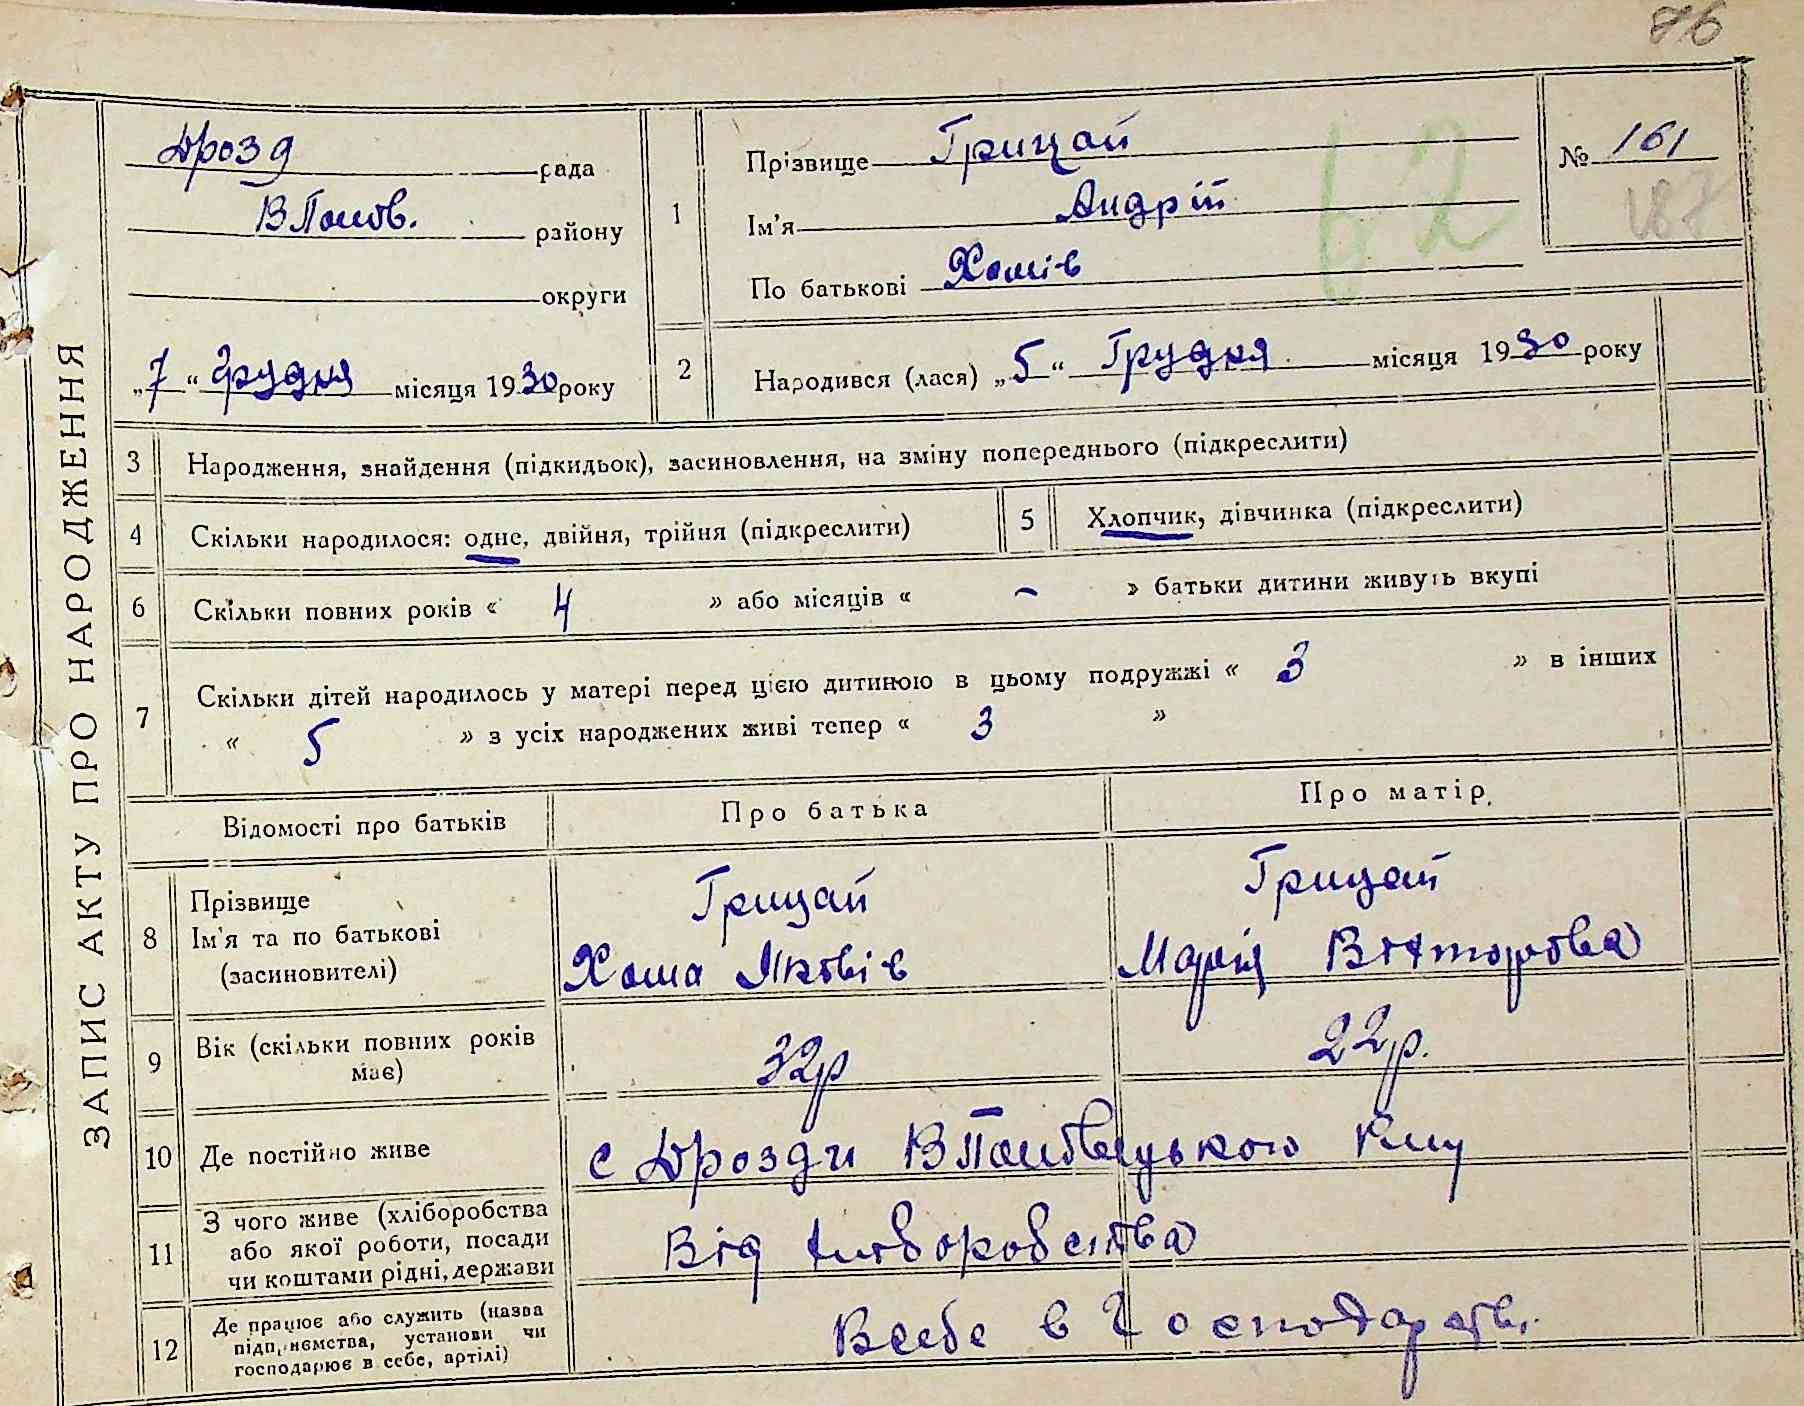 76
ЗАПИС АКТУ ПРО НАРОДЖЕННЯ
Дрозд рада
В Полов. району
округи
„7“ Грудня місяця 1930 року
1
Прізвище Грицай
Ім'я Андрій
По батькові Хомів
№ 161
187
62
2 Народився (лася) „5“ Грудня місяця 1930 року
3 Народження, знайдення (підкидьок), засиновлення, на зміну попереднього (підкреслити)
4 Скільки народилося: одне, двійня, трійня (підкреслити) 5 Хлопчик, дівчинка (підкреслити)
6 Скільки повних років « 4 » або місяців « – » батьки дитини живуть вкупі
7 Скільки дітей народилось у матері перед цією дитиною в цьому подружжі « 3 » в інших
« 5 » з усіх народжених живі тепер « 3 »
Відомості про батьків Про батька Про матір
8 Прізвище
Ім'я та по батькові
(засиновителі)
Грицай
Хома Яковів
Грицай
Марія Вікторова
9 Вік (скільки повних років
має)
32р 22р.
10 Де постійно живе
с Дрозди В
11 З чого живе (хліборобства
або якої роботи, посади
чи коштами рідні, держави
Від хліборобства
12 Де працює або служить (назва
підприємства, установи чи
господарює в себе, артілі)
В себе в господарстві.